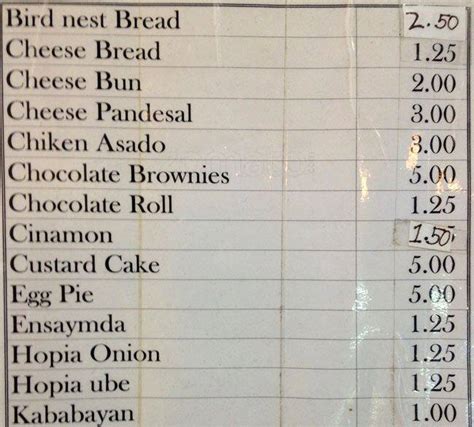 Bird nest Bread 2.50
Cheese Bread 1.25
Cheese Bun 2.00
Cheese Pandesal 3.00
Chiken Asado 3.00
Chocolate Brownies 5.00
Chocolate Roll 1.25
Cinamon 1.50
Custard Cake 5.00
Egg Pie 5.00
Ensaymda 1.25
Hopia Onion 1.25
Hopia ube 1.25
Kababayan 1.00